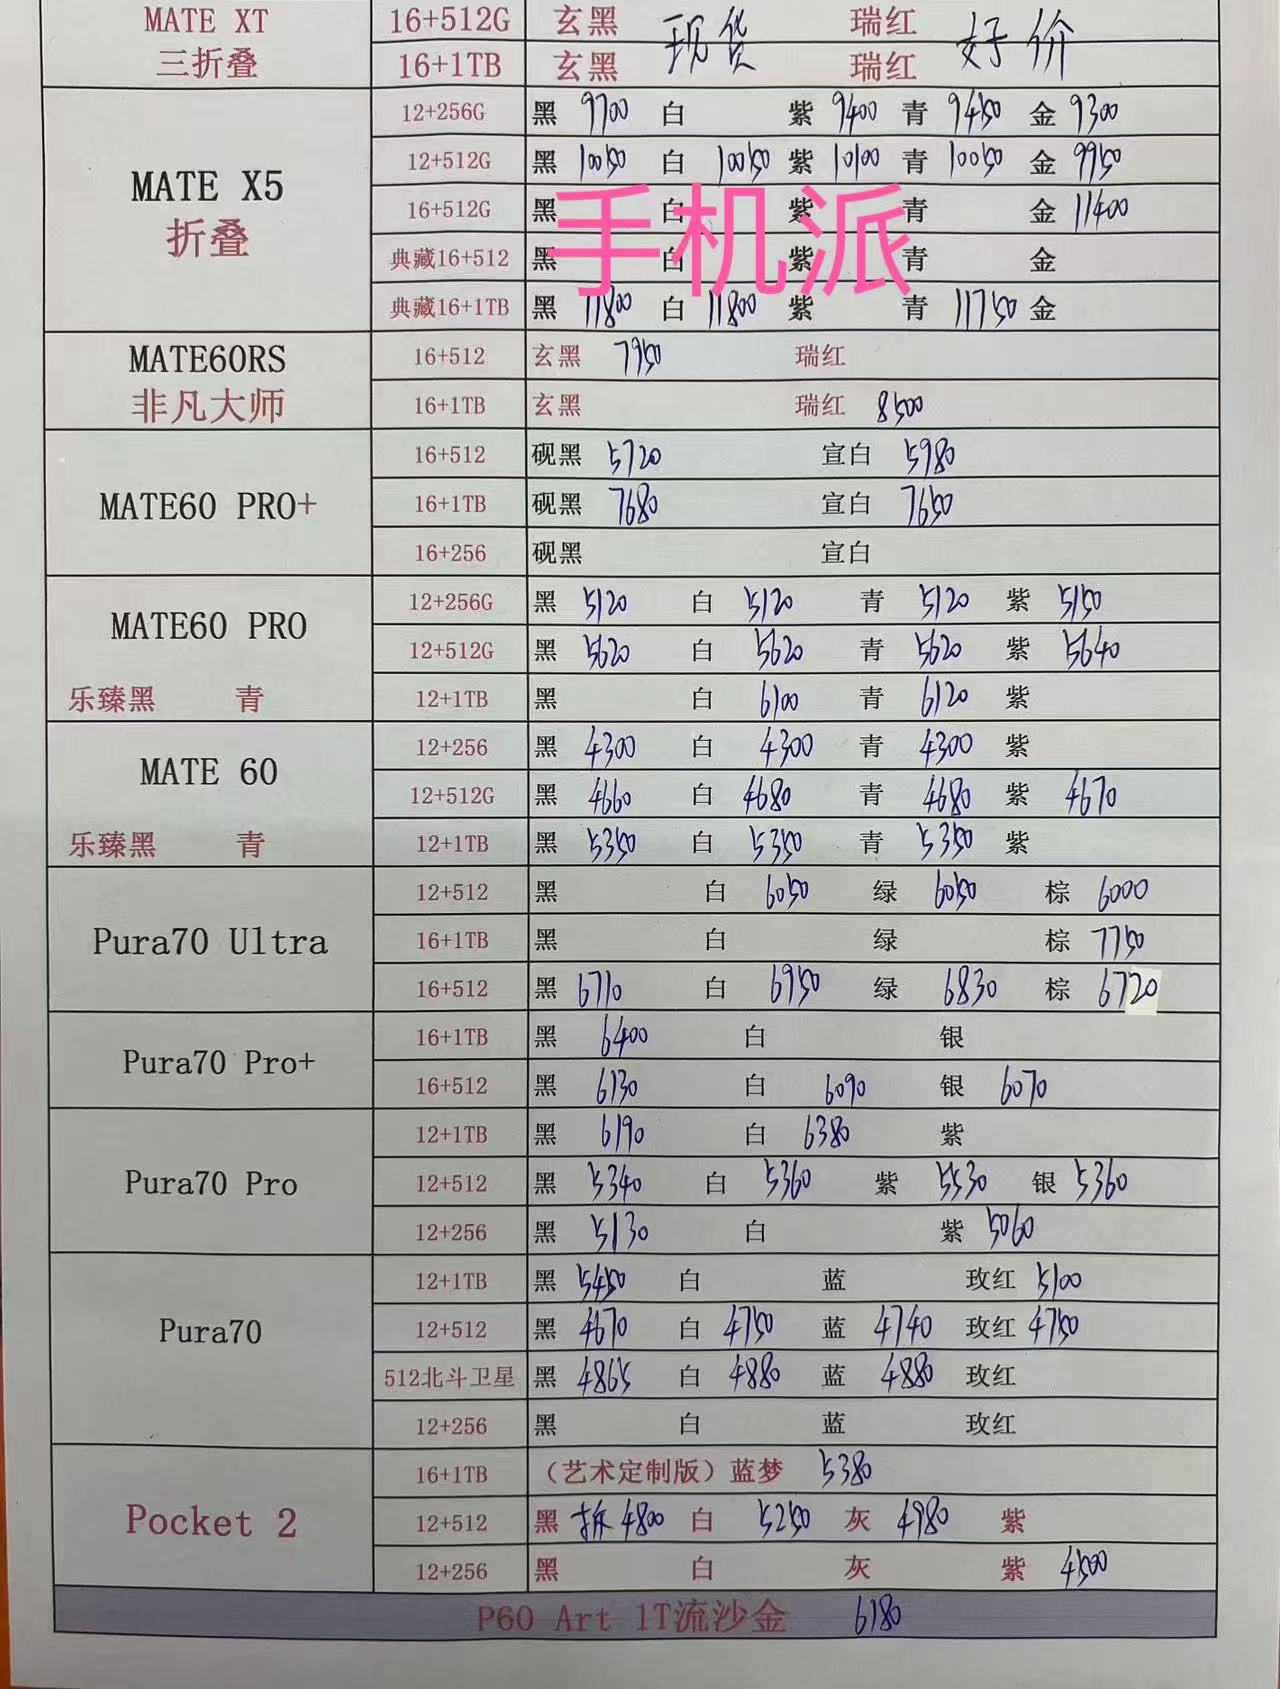 MATE XT 16+512G 玄黑 现货 瑞红 好价
三折叠 16+1TB 玄黑 瑞红
12+256G 黑 9700 白 紫 9400 青 9450 金 9300
12+512G 黑 10050 白 10050 紫 10100 青 10050 金 9950
MATE X5 16+512G 黑 白 紫 青 金 11400
手机派
折叠 典藏16+512 黑 白 紫 青 金
典藏16+1TB 黑 11800 白 11800 紫 青 11750 金
MATE60RS 16+512 玄黑 7950 瑞红
非凡大师 16+1TB 玄黑 瑞红 8500
16+512 砚黑 5720 宣白 5980
MATE60 PRO+ 16+1TB 砚黑 7680 宣白 7650
16+256 砚黑 宣白
12+256G 黑 5120 白 5120 青 5120 紫 5150
MATE60 PRO 12+512G 黑 5620 白 5620 青 5620 紫 5640
乐臻黑 青 12+1TB 黑 白 6100 青 6120 紫
12+256 黑 4300 白 4300 青 4300 紫
MATE 60 12+512G 黑 4660 白 4680 青 4680 紫 4670
乐臻黑 青 12+1TB 黑 5350 白 5350 青 5350 紫
12+512 黑 白 6050 绿 6050 棕 6000
Pura70 Ultra 16+1TB 黑 白 绿 棕 7750
16+512 黑 6710 白 6950 绿 6830 棕 6720
Pura70 Pro+ 16+1TB 黑 6400 白 银
16+512 黑 6130 白 6090 银 6070
12+1TB 黑 6190 白 6380 紫
Pura70 Pro 12+512 黑 5340 白 5360 紫 5530 银 5360
12+256 黑 5130 白 紫 5060
12+1TB 黑 5450 白 蓝 玫红 5100
Pura70 12+512 黑 4670 白 4750 蓝 4740 玫红 4750
512北斗卫星 黑 4865 白 4880 蓝 4880 玫红
12+256 黑 白 蓝 玫红
16+1TB （艺术定制版）蓝梦 5380
Pocket 2 12+512 黑 拆 4800 白 5250 灰 4980 紫
12+256 黑 白 灰 紫 4500
P60 Art 1T流沙金 6180